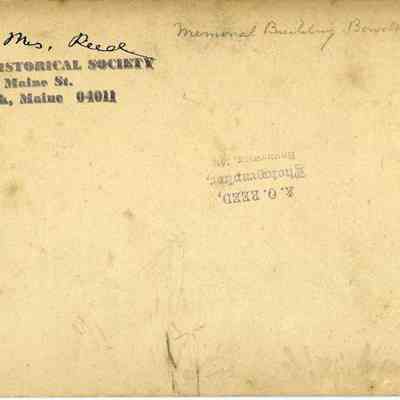 Mrs. Reed
ISTORICAL SOCIETY
Maine St.
k, Maine 04011
Memorial Building Bowd
A. O. REED,
Photographer,
Brunswick, Me.